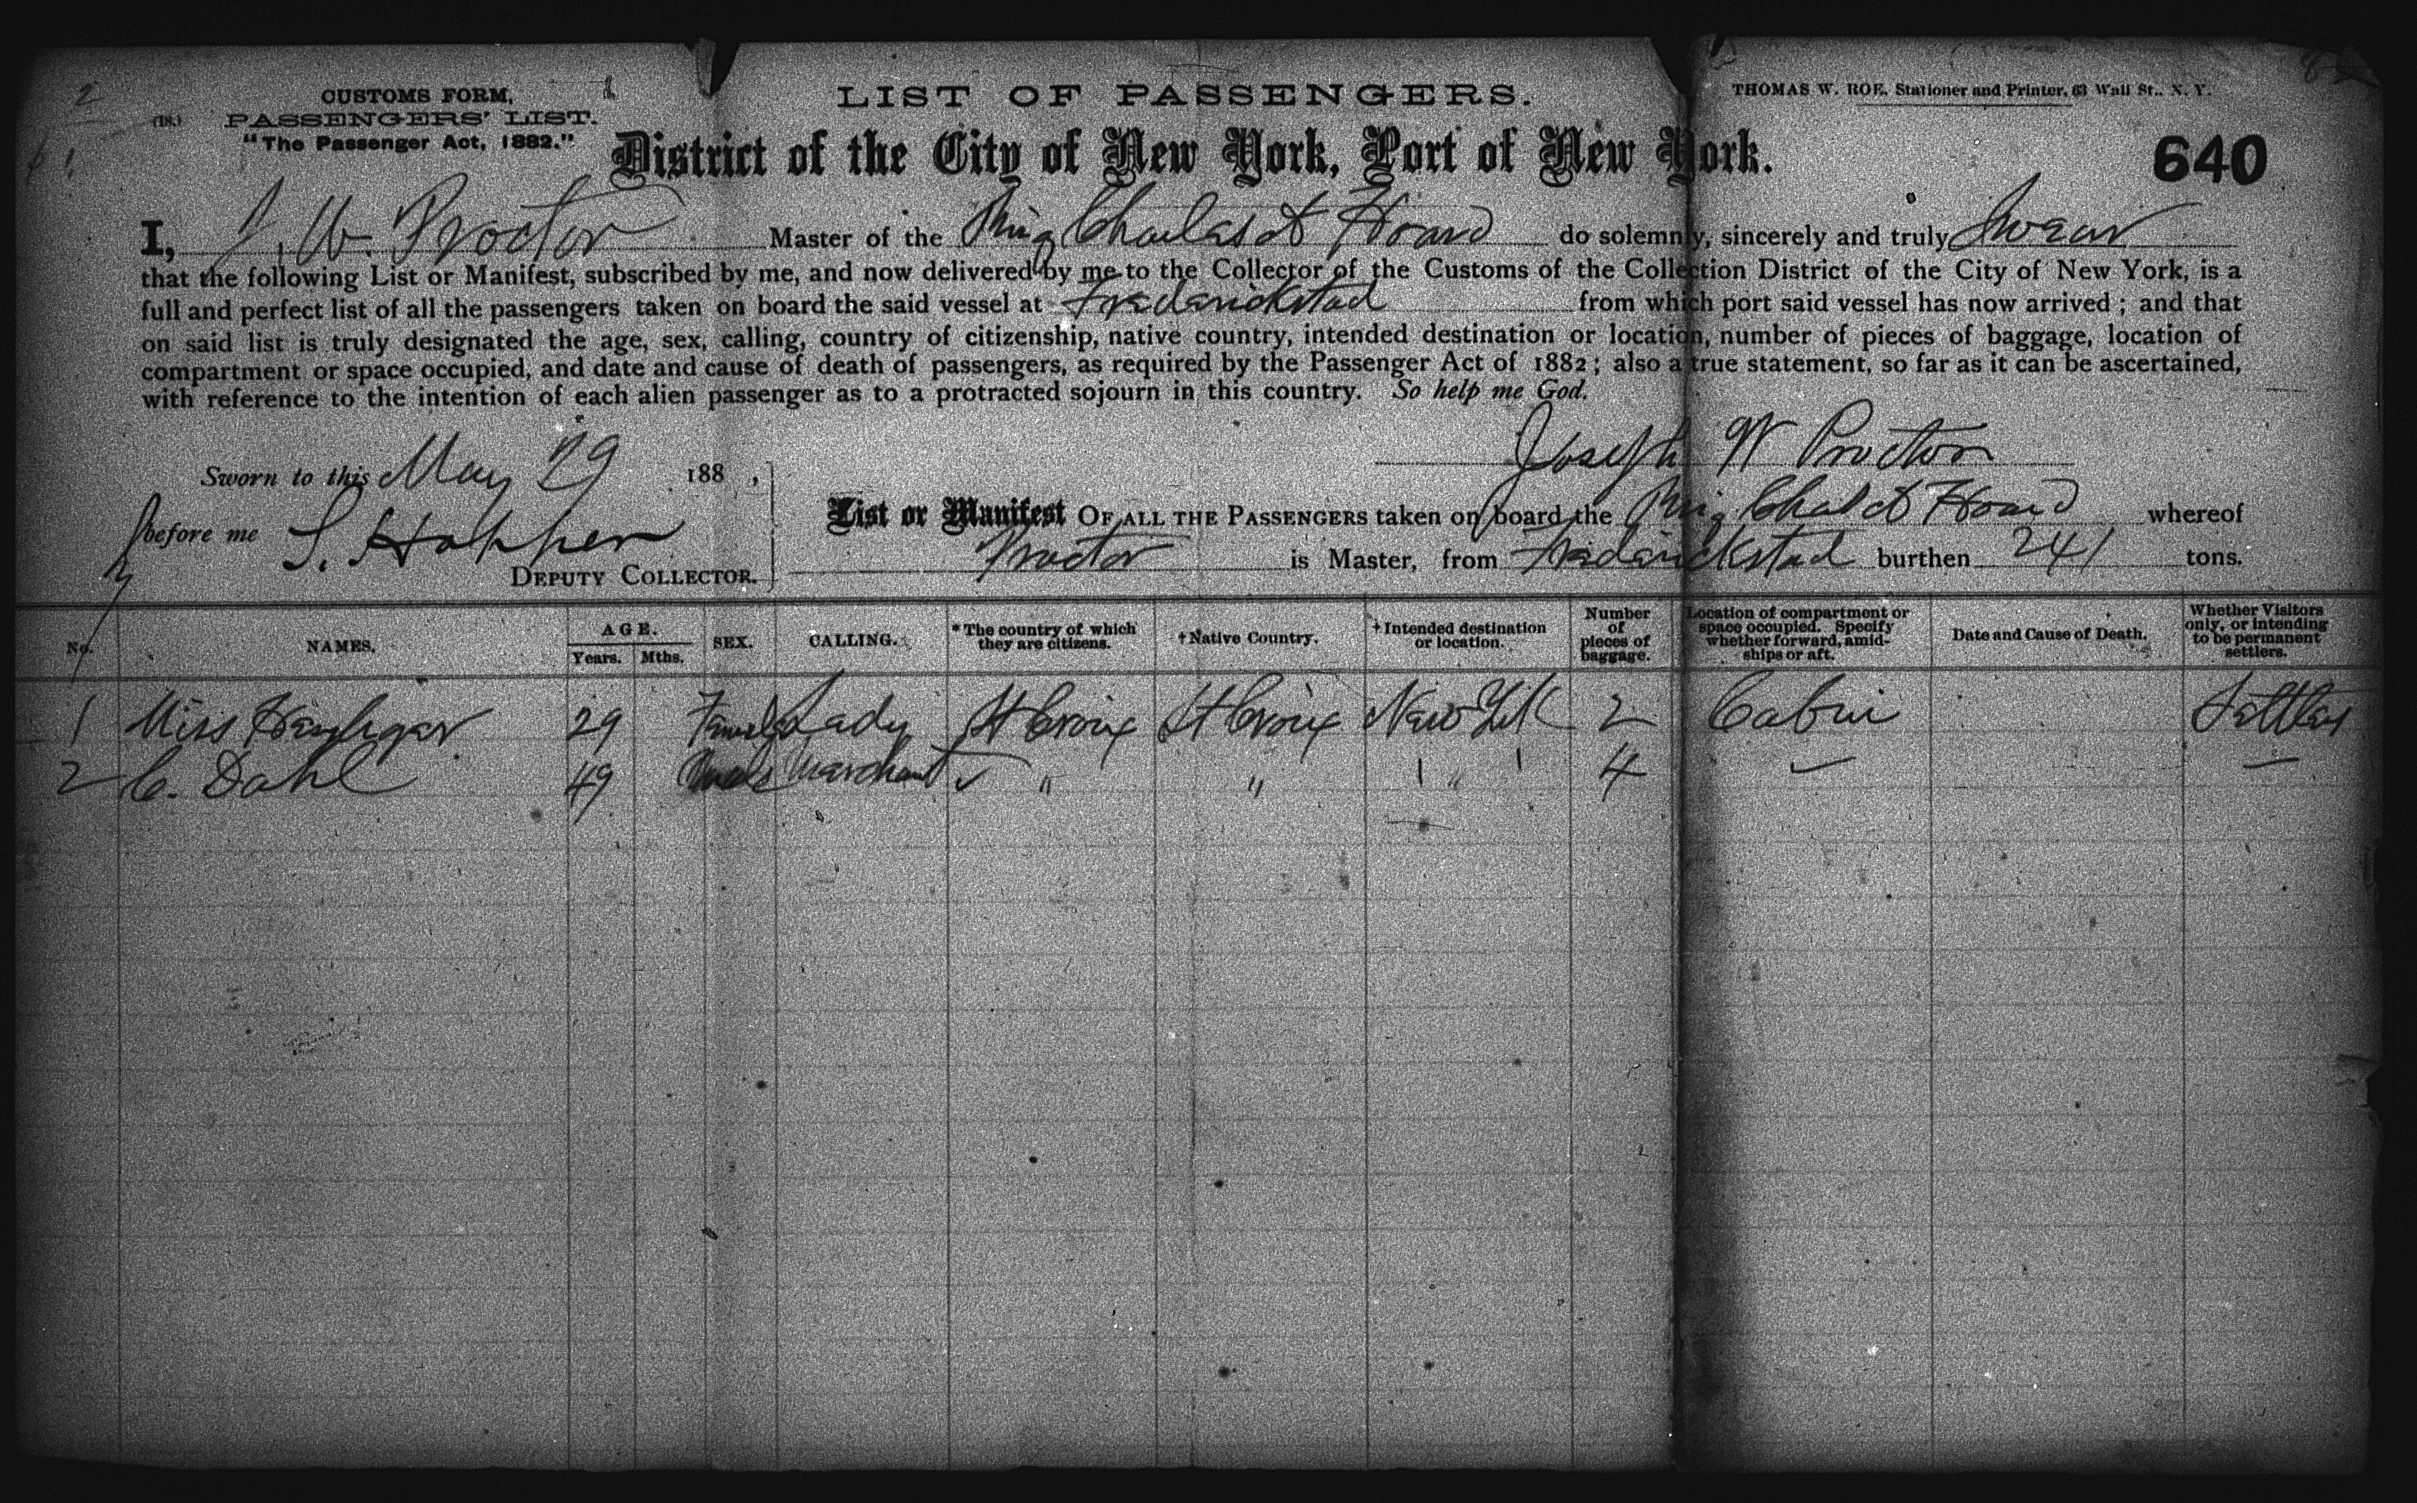 CUSTOMS FORM,
(18.) PASSENGERS' LIST.
"The Passenger Act, 1882."
LIST OF PASSENGERS.
THOMAS W. ROE, Stationer and Printer, 63 Wall St., N. Y.
District of the City of New York, Port of New York.
640
I, J. W. Proctor Master of the Brig Charles A Hoard do solemnly, sincerely and truly Swear
that the following List or Manifest, subscribed by me, and now delivered by me to the Collector of the Customs of the Collection District of the City of New York, is a
full and perfect list of all the passengers taken on board the said vessel at Frederickstad from which port said vessel has now arrived; and that
on said list is truly designated the age, sex, calling, country of citizenship, native country, intended destination or location, number of pieces of baggage, location of
compartment or space occupied, and date and cause of death of passengers, as required by the Passenger Act of 1882; also a true statement, so far as it can be ascertained,
with reference to the intention of each alien passenger as to a protracted sojourn in this country. So help me God.
Joseph W Proctor
Sworn to this May 29 188 ,
before me S. Hopper
DEPUTY COLLECTOR.
List or Manifest OF ALL THE PASSENGERS taken on board the Brig Chas A Hoard whereof
Proctor is Master, from Frederickstad burthen 241 tons.
No. NAMES. AGE. Years. Mths. SEX. CALLING. * The country of which they are citizens. † Native Country. † Intended destination or location. Number of pieces of baggage. Location of compartment or space occupied. Specify whether forward, amidships or aft. Date and Cause of Death. Whether Visitors only, or intending to be permanent settlers.
1 Miss 29 Female Lady St Croix St Croix New York 2 Cabin Settler
2 C. Dahl 49 Male Merchant " " " 4 — —